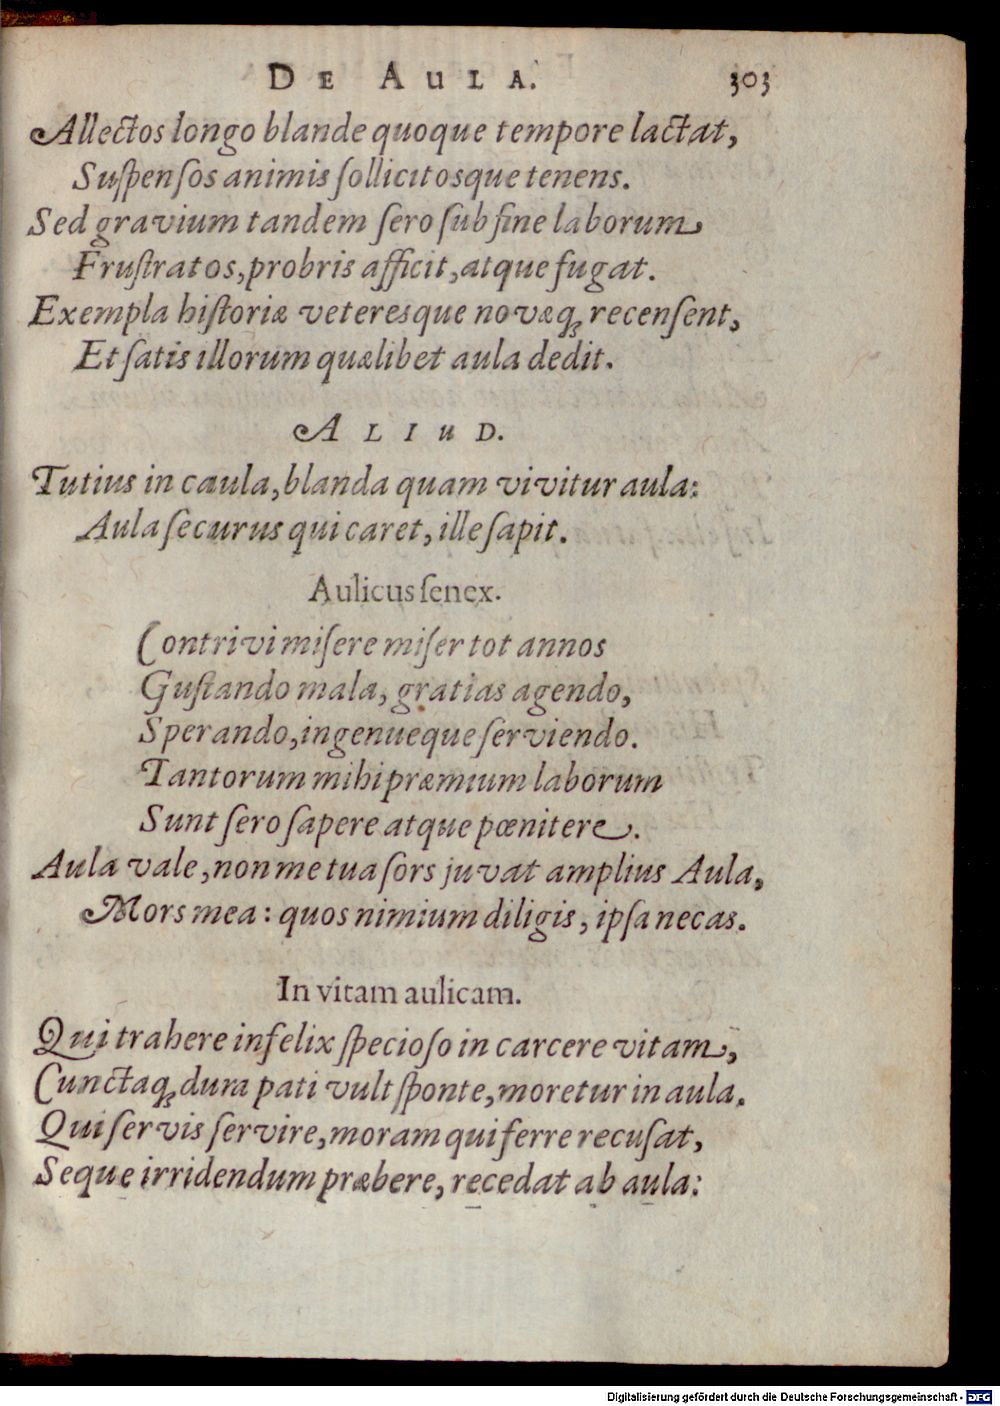 DE AULA. 303
Allectos longo blande quoque tempore lactat,
Suſpenſos animis ſollicitosque tenens.
Sed gravium tandem ſero ſub fine laborum
Fruſtratos, probris afficit, atque fugat.
Exempla hiſtoriæ veteresque novæq́ꝫ recenſent,
Et ſatis illorum quælibet aula dedit.
ALIUD.
Tutius in caula, blanda quam vivitur aula:
Aula ſecurus qui caret, ille ſapit.
Aulicus ſenex.
Contrivi miſere miſer tot annos
Guſtando mala, gratias agendo,
Sperando, ingenueque ſerviendo.
Tantorum mihi præmium laborum
Sunt ſero ſapere atque pœnitere.
Aula vale, non me tua ſors juvat amplius Aula,
Mors mea: quos nimium diligis, ipſa necas.
In vitam aulicam.
Qui trahere infelix ſpecioſo in carcere vitam,
Cunctaqꝫ dura pati vult ſponte, moretur in aula.
Qui ſervis ſervire, moram qui ferre recuſat,
Seque irridendum præbere, recedat ab aula:
Digitalisierung gefördert durch die Deutsche Forschungsgemeinschaft - DFG